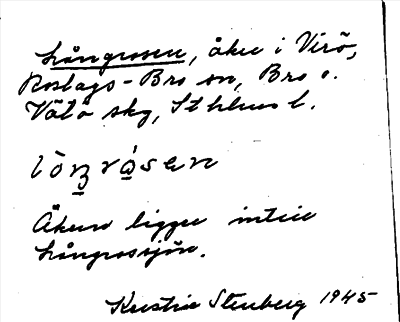 Långrosen, åker i Virö,
Roslags-Bro sn, Bro o.
Vätö skg, Sthlms l.
lòŋrɷ́sen
Åkern ligger intill
Långrossjön.
Kristin Stenberg 1945